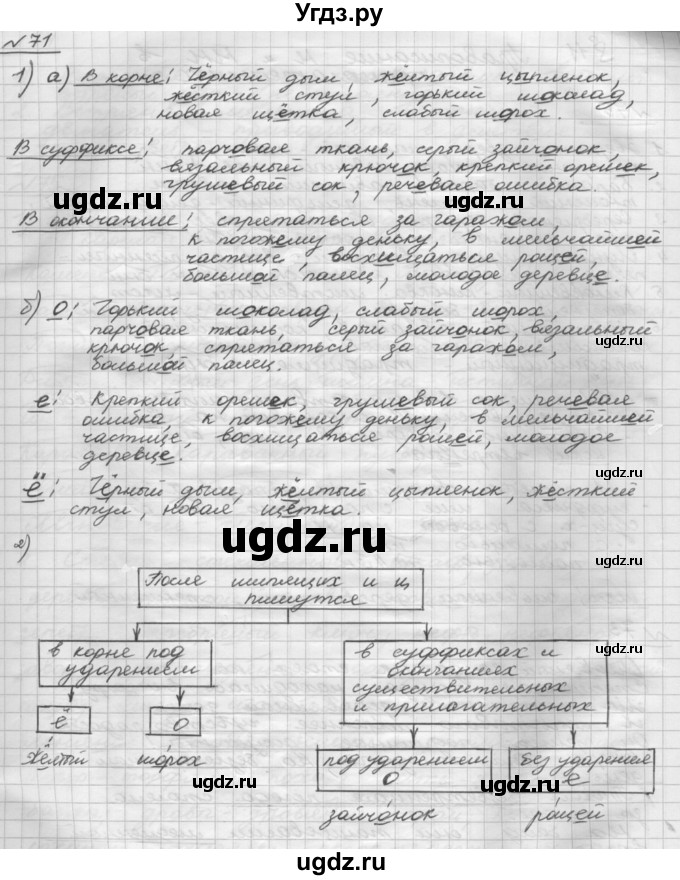 Угдз.ру
№71
1) а) В корне: Чёрный дым, жёлтый цыпленок,
жёсткий стул, горький шоколад,
новая щётка, слабый шорох.
В суффиксе: парчовая ткань, серый зайчонок,
вязальный крючок, крепкий орешек,
грушевый сок, речевая ошибка.
ugdz.ru ugdz.ru
В окончание: спрятаться за гаражом,
к погожему деньку, в мельчайшей
частице, восхищаться рощей,
большой палец, молодое деревце.
ugdz.ru
б) о: Горький шоколад, слабый шорох,
парчовая ткань, серый зайчонок, вязальный
крючок, спрятаться за гаражом,
большой палец.
ugdz.ru
е: Крепкий орешек, грушевый сок, речевая
ошибка, к погожему деньку, в мельчайшей
частице, восхищаться рощей, молодое
деревце.
ugdz.ru
ё: Чёрный дым, жёлтый цыпленок, жёсткий
стул, новая щётка.
ugdz.ru
2)
ugdz.ru
После шипящих и ц
пишутся
в корне под
ударением
в суффиксах и
окончаниях
существительных
и прилагательных
ё о
жёлтый шорох
под ударением
о
без ударения
е
ugdz.ru ugdz.ru
зайчонок рощей
ugdz.ru